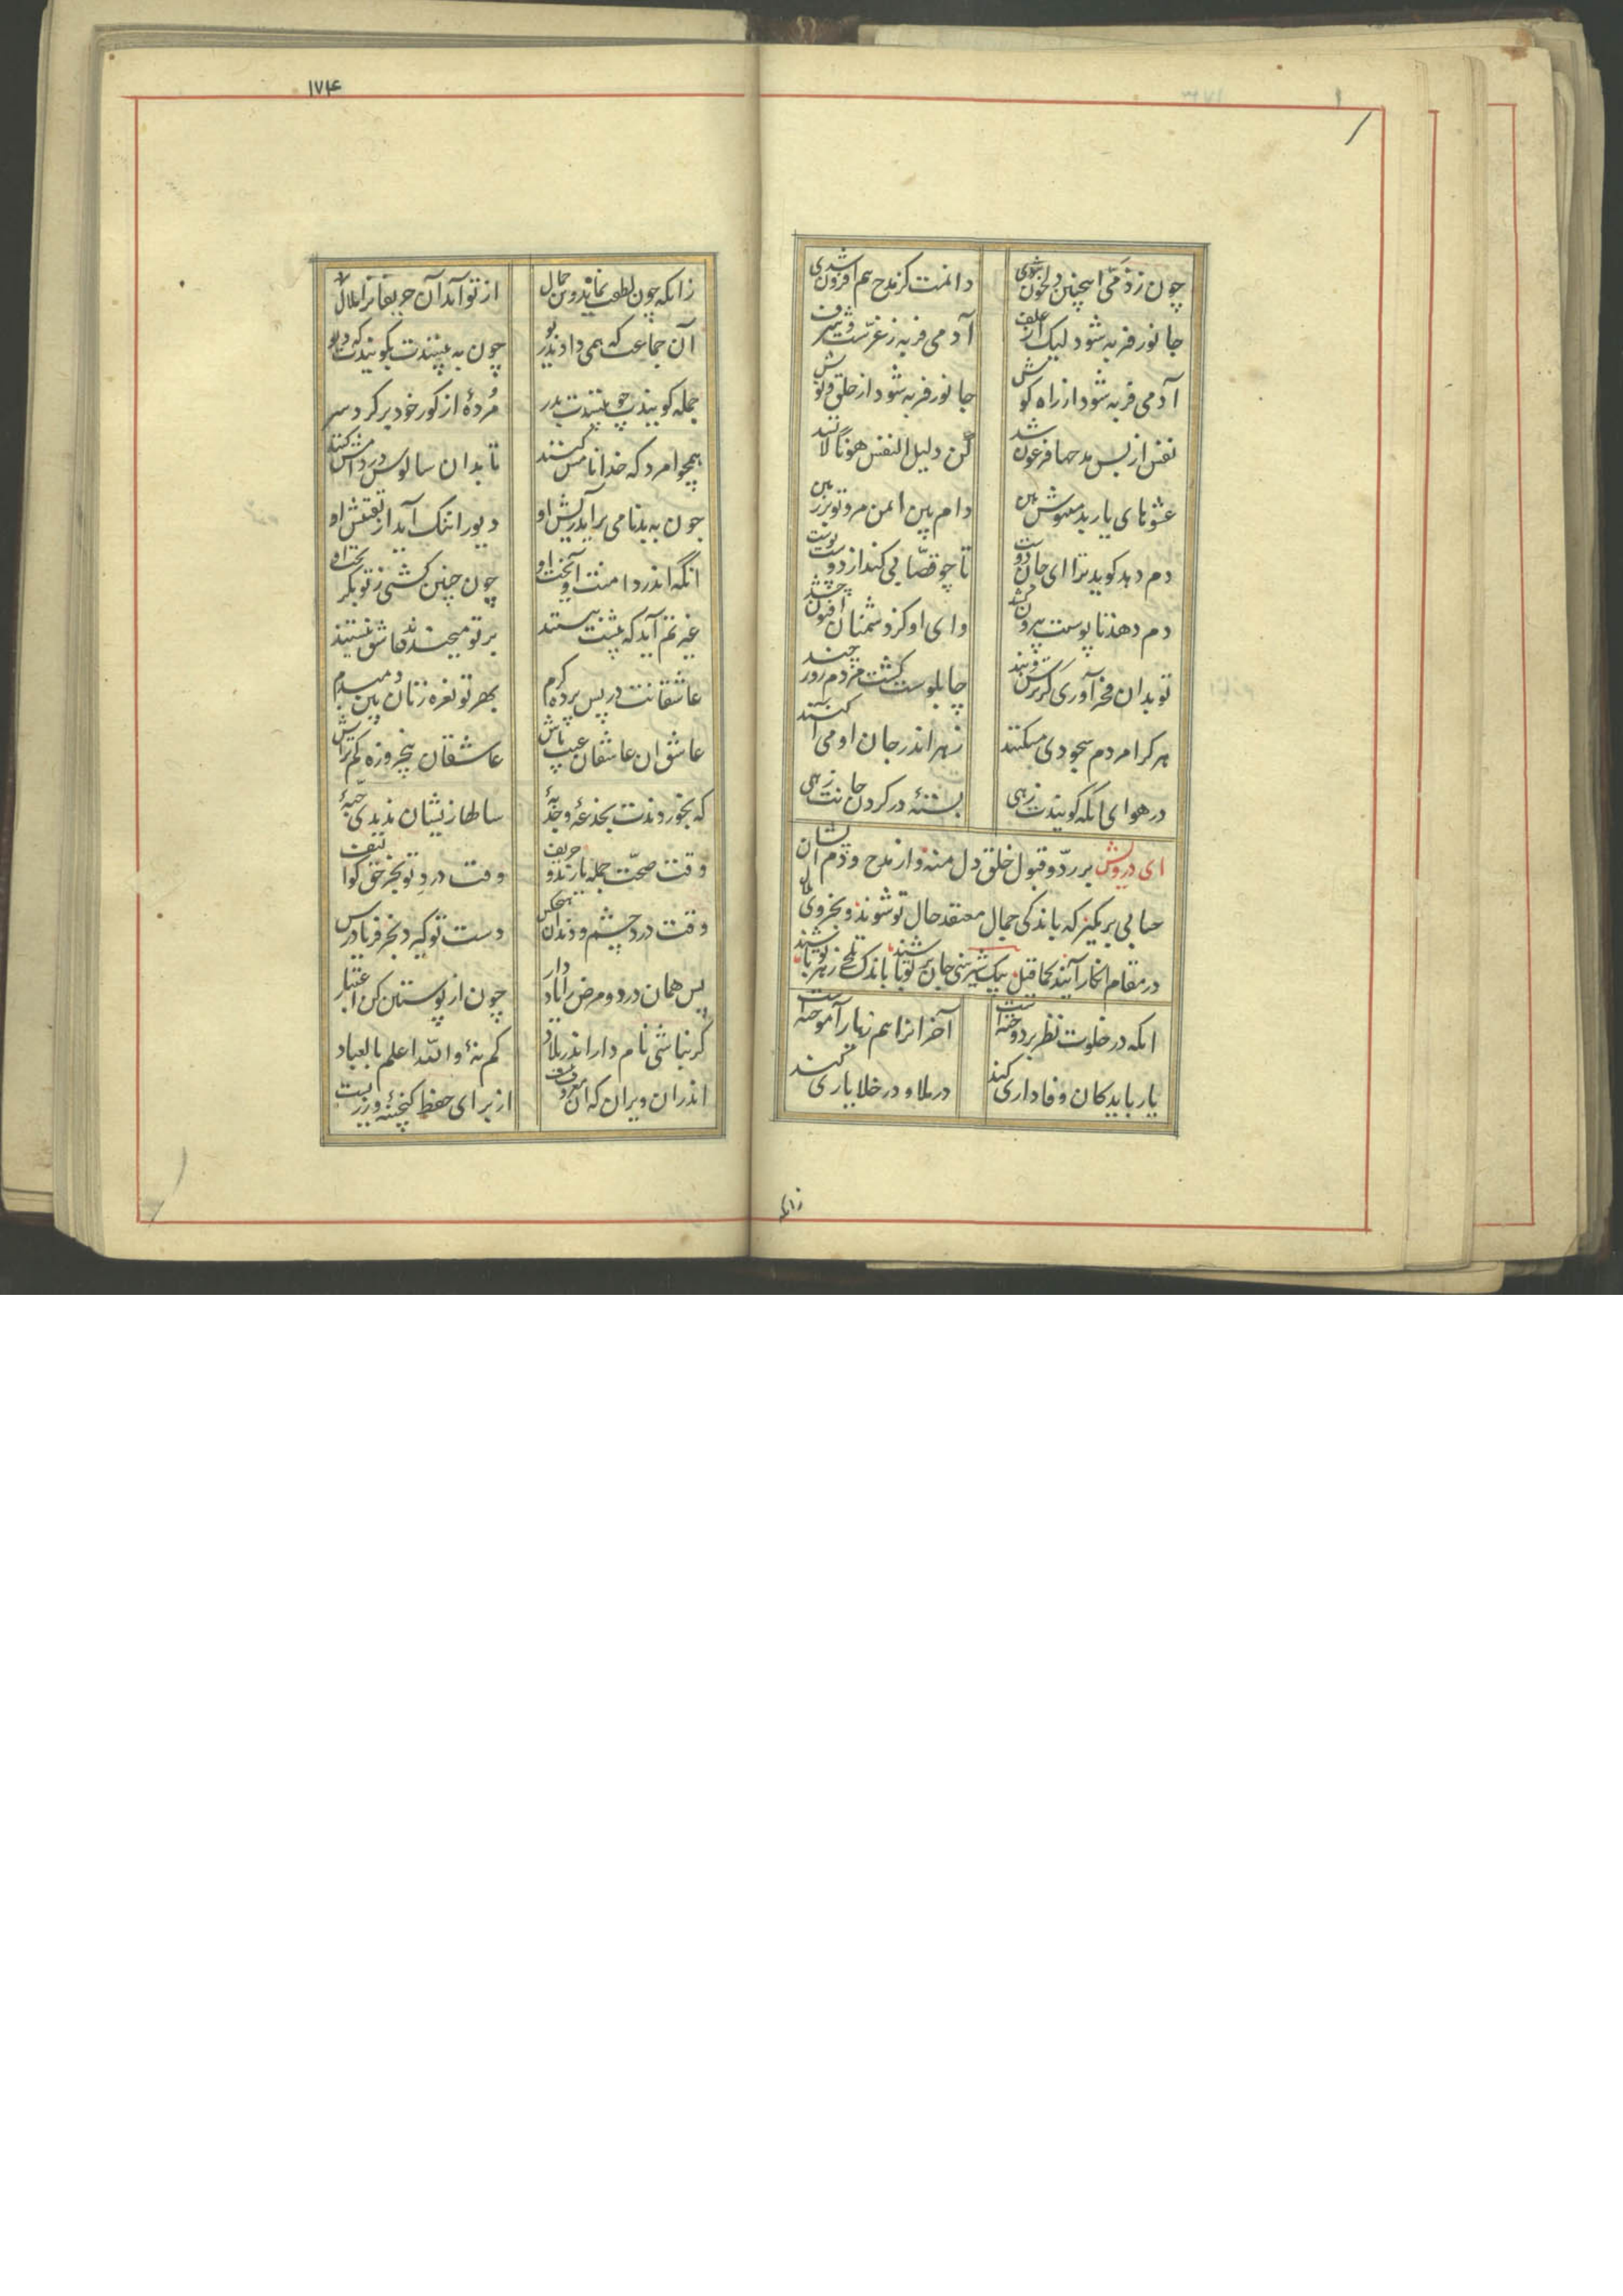 چون ز ذمّی اینچنین دلخون شوی
دانمت کز مدح هم افزون شدی
جانور فربه شود لیک از علف
آدمی فربه ز عزّست و شرف
آدمی فربه شود از راه گوش
جانور فربه شود از حلق و نوش
نفس از بس مدحها فرعون شد
کن دلیل النفس هونا لا تسد
عشوهای یار بد منیوش هین
دام بین ایمن مرو تو بر زمین
دم دهد گوید ترا ای جان دوست
تا چو قصّابی کند از دوست پوست
دم دهد تا پوست بیرون کشد
وای او کز دشمنان افیون چشد
تو بدان فخر آوری کز ترس و بند
چاپلوست گشت مردم روز چند
هر کرا مردم سجودی میکنند
زهر اندر جان او می آکنند
در هوای آنکه گویندت زهی
بستهٔ در گردن جانت زهی
ای درویش بر ردّ و قبول خلق دل منه و از مدح و ذم ایشان
حسابی بر مگیر که باندکی جمال معتقد حال تو شوند و بجزوی
در مقام انکار آیند کما قیل بیک شیرینی جان بر تو پاشند باندک تلخی زهر تو باشند
آنکه در خلوت نظر بر دوخته است
آخر آنرا هم ز یار آموخته است
یار باید کان وفاداری کند
در ملا و در خلا یاری کند
زانکه
۱۷۴
زانکه چون لطفت نماند وین جمال
از تو آید آن حریفانرا ملال
آن جماعت که همی دادند ریو
چون به بینندت بگویندت که دیو
جمله گویند چو بینندت بدر
مُردهٔ از گور خود بر کرد سر
همچو امرد که خدا نامش کنند
تا بدان سالوس در دامش کنند
چون به بدنامی برآید ریش او
دیو را ننگ آید از تفتیش او
چون چنین گشتی ز تو بگریخت او
عاشقانت در پس پرده کرم
بهر تو نعره زنان بین دم بدم
عاشق آن عاشقان غیب باش
عاشقان پنجروزه کم تراش
که بخوردندت بخدعه و جذبهٔ
سالها زیشان ندیدی حبّهٔ
وقت صحّت جمله یارند و حریف
وقت درد تو بجز حق کو الیف
وقت درد چشم و دندان هیچکس
دست تو گیرد بجز فریاد رس
پس همان درد و مرض را یاد دار
چون ایاز از پوستین کن اعتبار
گر نباشی نام دار اندر بلاد
کم نهٔ والله اعلم بالعباد
اندران ویران که آن معروف نیست
از برای حفظ گنجینهٔ زریست